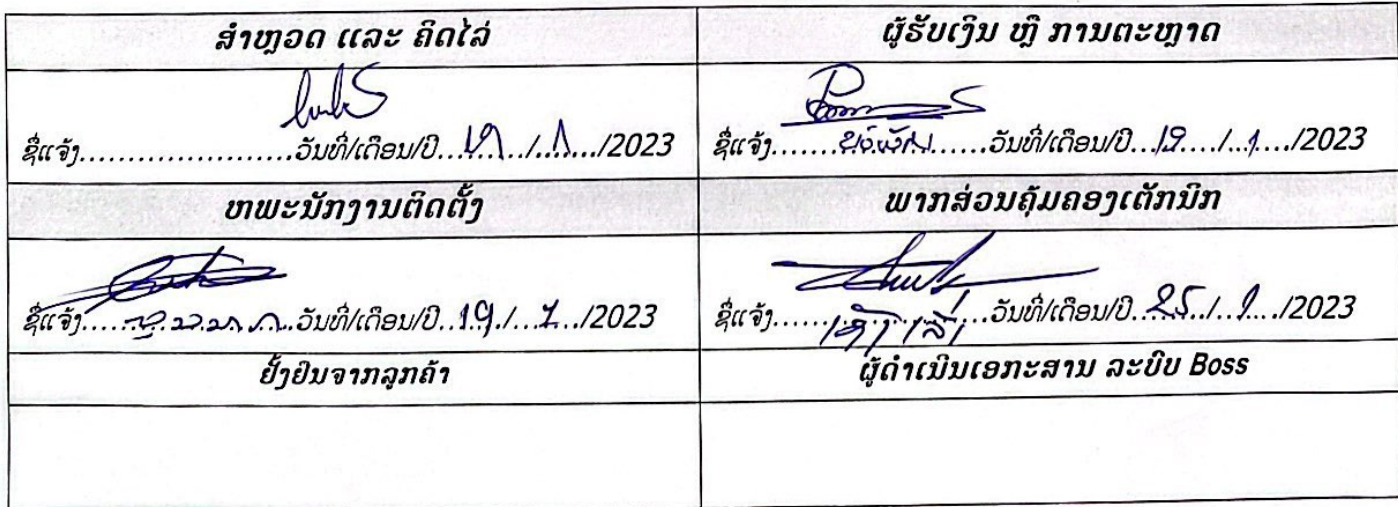 ສຳຫຼວດ ແລະ ຄິດໄລ່
ຜູ້ຮັບເງິນ ຫຼື ການຕະຫຼາດ
ຊື່ແຈ້ງ......................ວັນທີ່/ເດືອນ/ປີ....../....../2023
ຊື່ແຈ້ງ......................ວັນທີ່/ເດືອນ/ປີ...19..../...1..../2023
ຫພະນັກງານຕິດຕັ້ງ
ພາກສ່ວນຄຸ້ມຄອງເຕັກນິກ
ຊື່ແຈ້ງ......................ວັນທີ່/ເດືອນ/ປີ..19../...1.../2023
ຊື່ແຈ້ງ......................ວັນທີ່/ເດືອນ/ປີ..25../...1.../2023
ຢັ້ງຢືນຈາກລູກຄ້າ
ຜູ້ດຳເນີນເອກະສານ ລະບົບ Boss